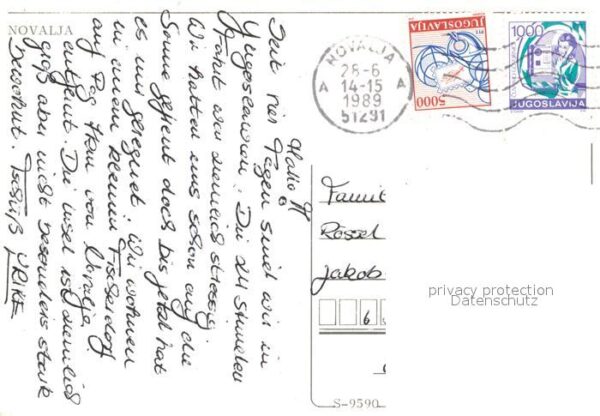 NOVALJA
Hallo
Seit vier Tagen sind wir in
Jugoslawien. Die 24 stunden
Fahrt war ziemlich stressig.
Wir hatten uns schon auf die
Sonne gefreut doch bis jetzt hat
es nur geregnet. Wir wohnen
in einem kleinen Fischerdorf
auf Pag 4km von Novalja
entfernt. Die insel ist ziemlich
groß aber nicht besonders stark
bewohnt. Tschüß ULRIKE
NOVALJA
A A
28-6
14-15
1989
51291
JUGOSLAVIJA
PTT
5000
1000
JUGOSLAVIJA
Famil
Rössel
Jakob
6
privacy protection
Datenschutz
S-9590